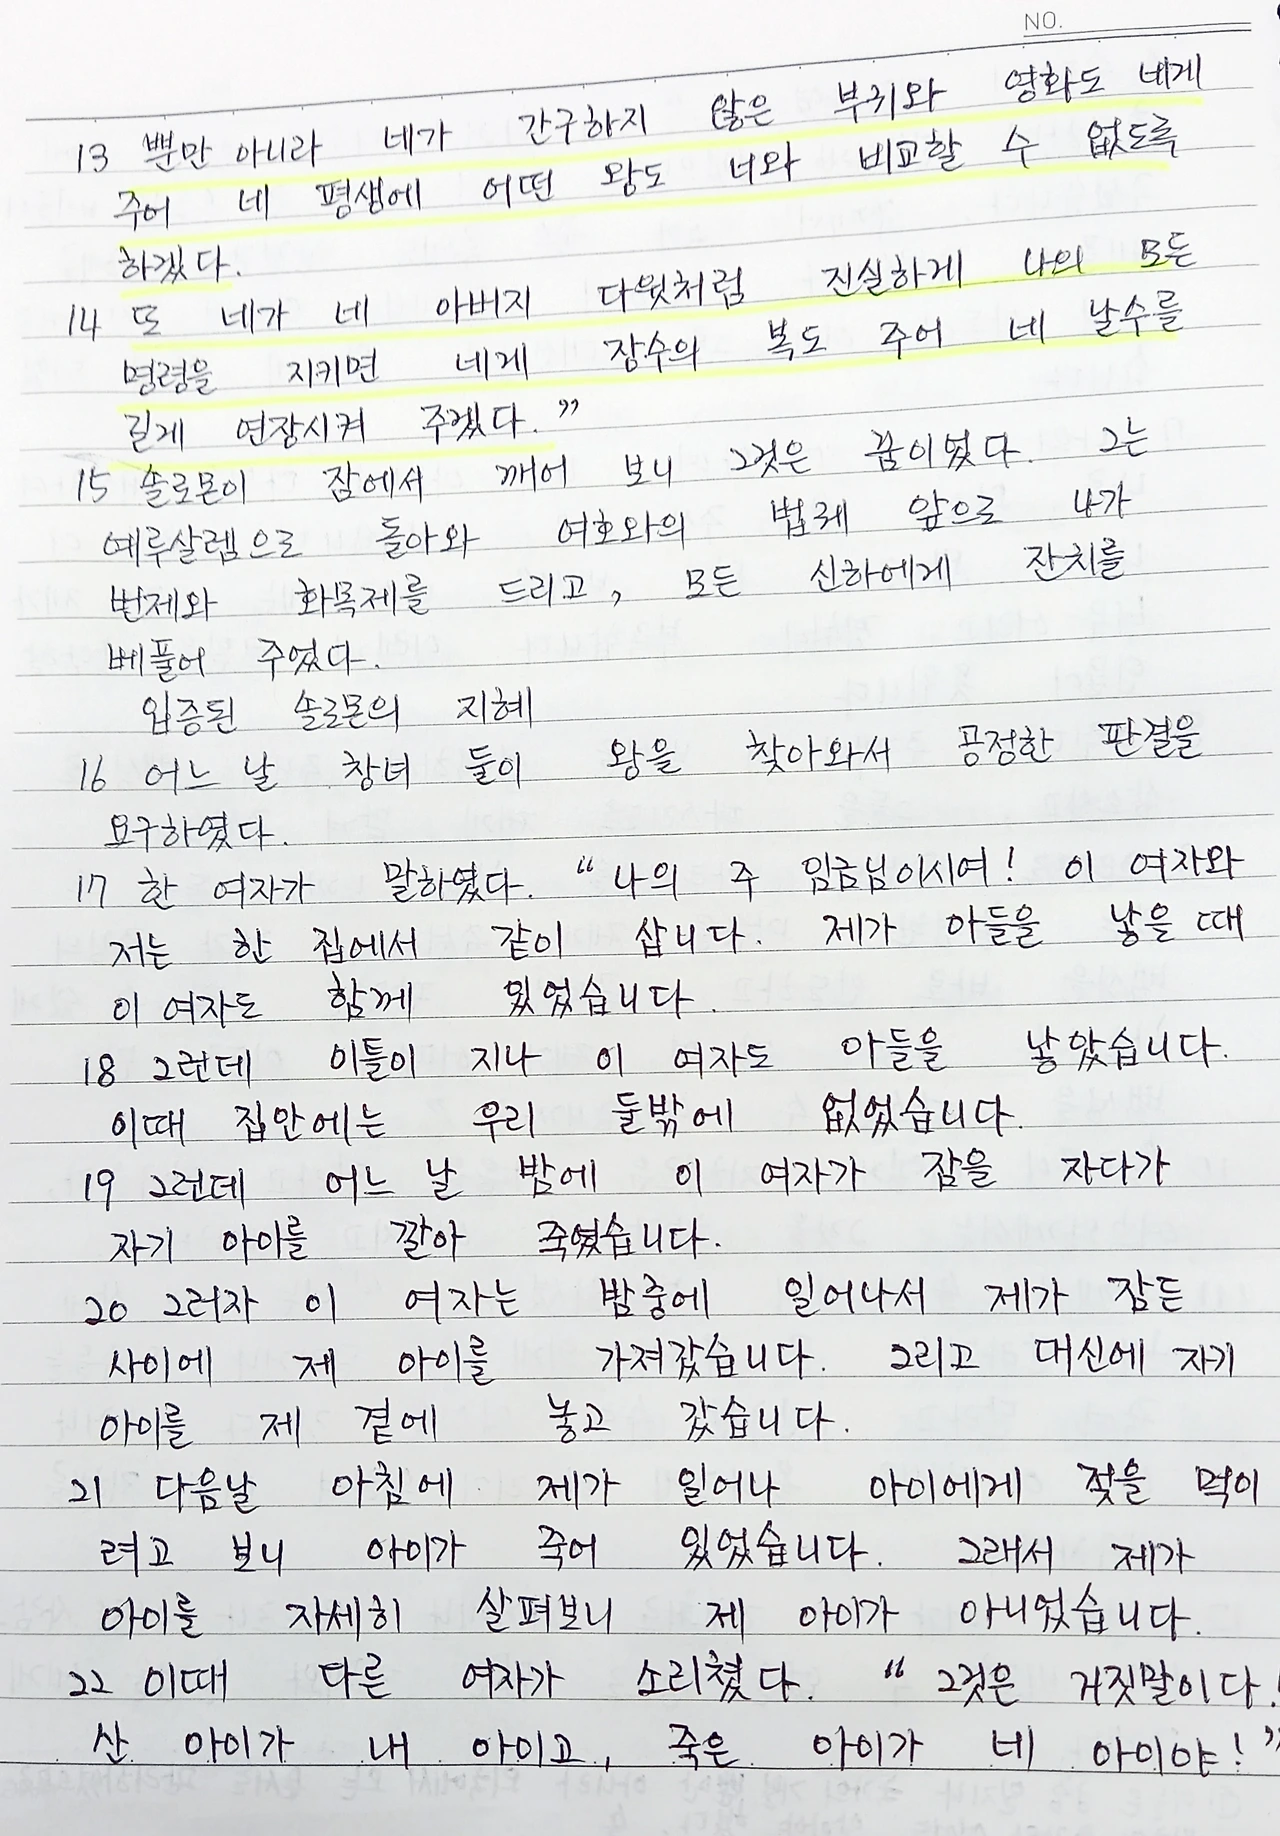 NO.
13 뿐만 아니라 네가 간구하지 않은 부귀와 영화도 네게
주어 네 평생에 어떤 왕도 너와 비교할 수 없도록
하겠다.
14 또 네가 네 아버지 다윗처럼 진실하게 나의 모든
명령을 지키면 네게 장수의 복도 주어 네 날수를
길게 연장시켜 주겠다.”
15 솔로몬이 잠에서 깨어 보니 그것은 꿈이었다. 그는
예루살렘으로 돌아와 여호와의 법궤 앞으로 나가
번제와 화목제를 드리고, 모든 신하에게 잔치를
베풀어 주었다.
입증된 솔로몬의 지혜
16 어느 날 창녀 둘이 왕을 찾아와서 공정한 판결을
요구하였다.
17 한 여자가 말하였다. “나의 주 임금님이시여! 이 여자와
저는 한 집에서 같이 삽니다. 제가 아들을 낳을 때
이 여자도 함께 있었습니다.
18 그런데 이틀이 지나 이 여자도 아들을 낳았습니다.
이때 집안에는 우리 둘밖에 없었습니다.
19 그런데 어느 날 밤에 이 여자가 잠을 자다가
자기 아이를 깔아 죽였습니다.
20 그러자 이 여자는 밤중에 일어나서 제가 잠든
사이에 제 아이를 가져갔습니다. 그리고 대신에 자기
아이를 제 곁에 놓고 갔습니다.
21 다음날 아침에 제가 일어나 아이에게 젖을 먹이
려고 보니 아이가 죽어 있었습니다. 그래서 제가
아이를 자세히 살펴보니 제 아이가 아니었습니다.
22 이때 다른 여자가 소리쳤다. “그것은 거짓말이다!
산 아이가 내 아이고, 죽은 아이가 네 아이야!”